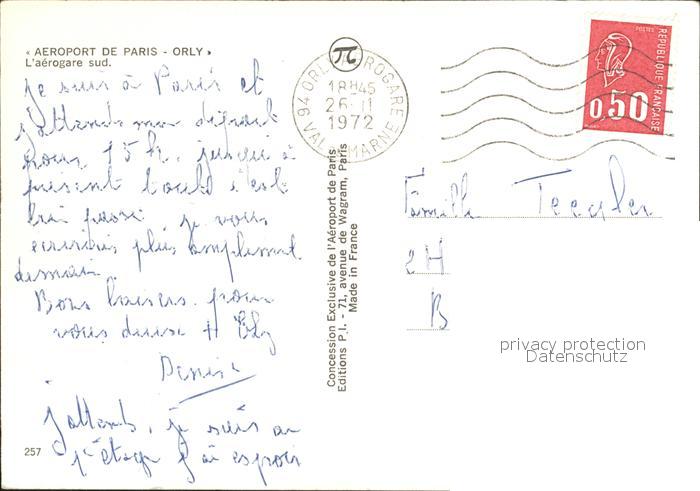 « AEROPORT DE PARIS - ORLY »
L'aérogare sud.
je suis à Paris et
j'attends mon départ
pour 15h. jusqu'à
présent tout s'est
bien passé je vous
écrirais plus amplement
demain.
Bons baisers pour
vous deux
Denise
J'attends, je suis au
j'ai espoir
257
Concession Exclusive de l'Aéroport de Paris
Editions P.I. - 71, avenue de Wagram, Paris
Made in France
94 ORLY AEROGARE
18H45
26-11
1972
VAL DE MARNE
POSTES
REPUBLIQUE FRANÇAISE
0,50
Famille
2H
B
privacy protection
Datenschutz